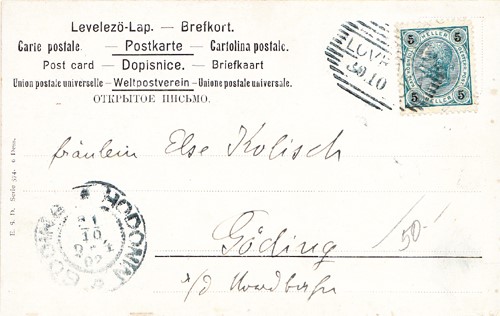 Levelezö-Lap. — Brefkort.
Carte postale. — Postkarte — Cartolina postale.
Post card — Dopisnice. — Briefkaart
Union postale universelle — Weltpostverein — Unione postale universale.
ОТКРЫТОЕ ПИСЬМО.
5 HELLER 5
5 HELLER 5
30.10
Fräulein Else Kolisch
E. S. D. Serie
HODONIN
GÖDING
Göding
50.-